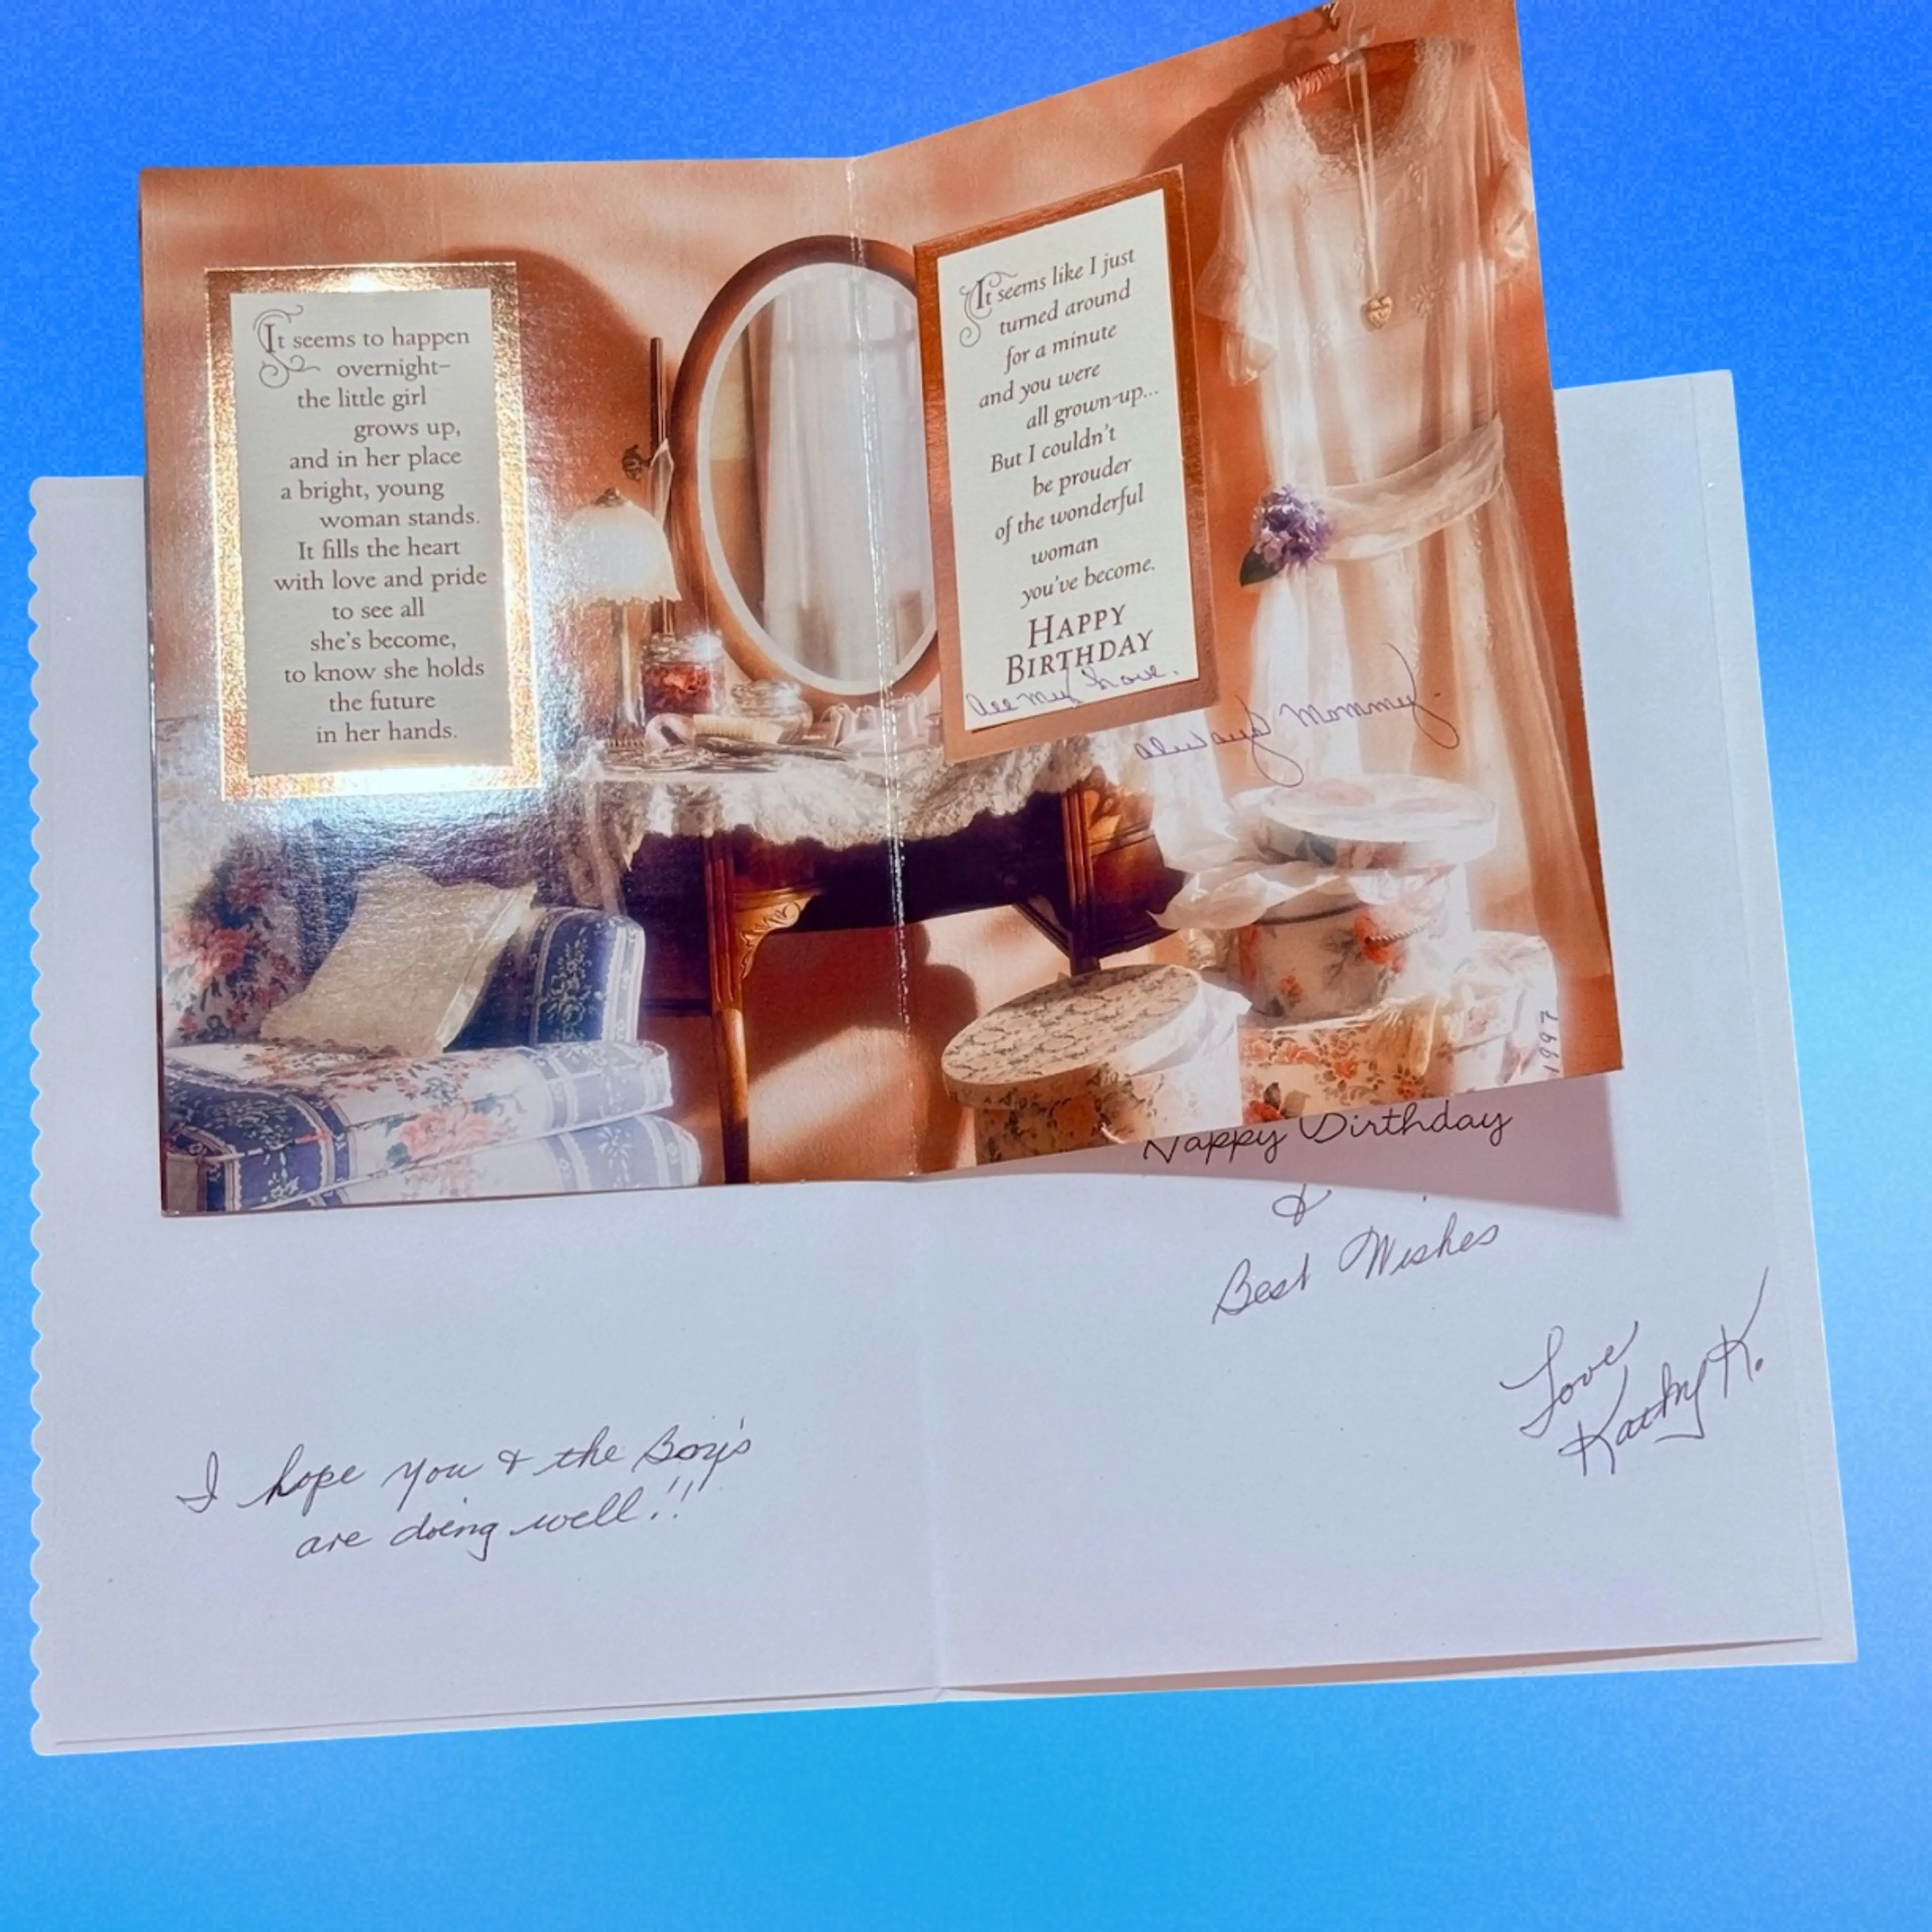 It seems to happen
overnight–
the little girl
grows up,
and in her place
a bright, young
woman stands.
It fills the heart
with love and pride
to see all
she's become,
to know she holds
the future
in her hands.
It seems like I just
turned around
for a minute
and you were
all grown-up...
But I couldn't
be prouder
of the wonderful
woman
you've become.
HAPPY
BIRTHDAY
All my Love.
always Mommy.
1997
Happy Birthday
&
Best Wishes
Love
Kathy K.
I hope you & the Boy's
are doing well!!!